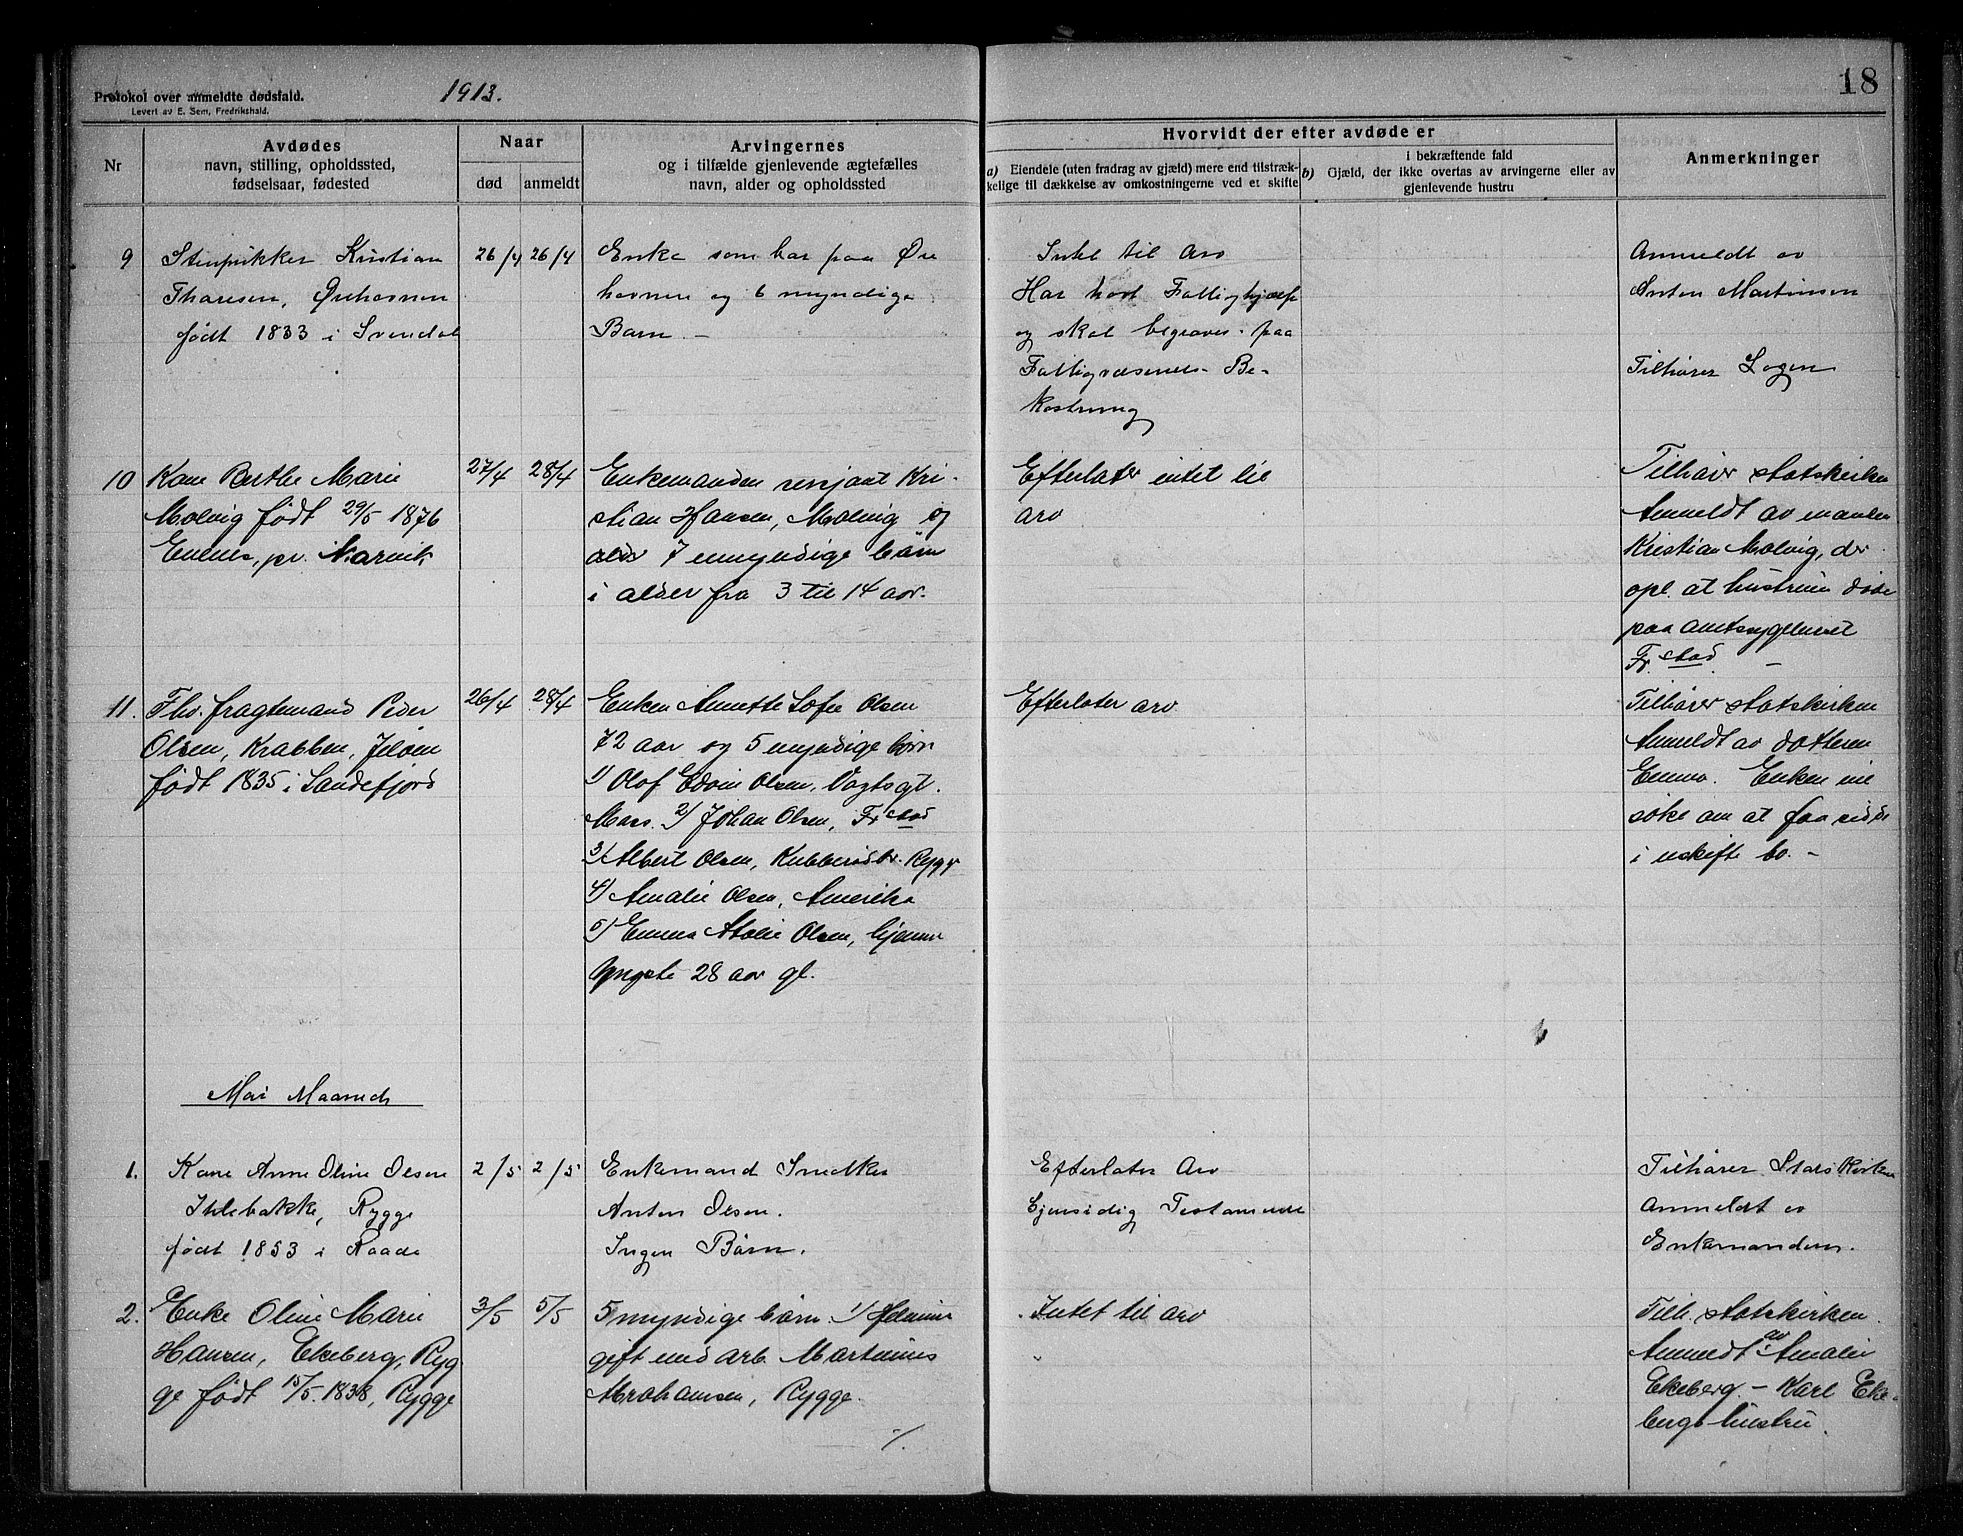 Protokol over anmeldte dødsfald.
Levert av E. Sem, Fredrikshald.
1913.
18
Nr
Avdødes
navn, stilling, opholdssted,
fødselsaar, fødested
Naar
død
anmeldt
Arvingernes
og i tilfælde gjenlevende ægtefælles
navn, alder og opholdssted
Hvorvidt der efter avdøde er
a) Eiendele (uten fradrag av gjæld) mere end tilstræk-
kelige til dækkelse av omkostningerne ved et skifte
i bekræftende fald
b) Gjæld, der ikke overtas av arvingerne eller av
gjenlevende hustru
Anmerkninger
9
Stenpikker Kristian
Thoresen, Ørehavnen
født 1833 i Svendal
26/4
26/4
Enke som bor paa Øre
havnen og 6 myndige
Barn -
Intet til Arv
Har havt Fattighjælp
og skal begraves paa
Fattigvæsenets Be-
kostning
Anmeldt av
Anton Martinsen
Tilhører Logen
10
Kone Berthe Marie
Molvig født 29/5 1876
Emnes, pr. Narvik
27/4
28/4
Enkemanden sersjant Kri-
stian Hansen, Molvig og
7 umyndige børn
i alder fra 3 til 14 aar.
Efterlater intet til
arv
Tilhører statskirken
Anmeldt av manden
Kristian Molvig, der
opl. at hustruen døde
paa amtssygehuset
Fr.stad. -
11.
Fhv. fragtemand Peder
Olsen, Krabben, Jeløen
født 1835 i Sandefjord
26/4
28/4
Enken Annette Sofie Olsen
72 aar og 5 myndige børn
1) Olof Edvin Olsen, Vogtsgt.
Moss. 2) Johan Olsen, Fr.stad
3) Albert Olsen, Kubberødbr. Rygge
4) Amalie Olsen, Amerika
5) Emma Atalie Olsen, hjemme
Yngste 28 aar gl.
Efterlater arv
Tilhører statskirken
Anmeldt av datteren
Emma. Enken vil
søke om at faa sidde
i uskifte bo. -
Mai Maaned
1.
Kone Anne Oline Olsen
Ihlebakke, Rygge
født 1853 i Raade
2/5
2/5
Enkemand Snedker
Anton Olsen.
Ingen Børn.
Efterlater Arv
Gjensidig Testamente
Tilhører Statskirken
Anmeldt av
Enkemanden.
2.
Enke Oline Marie
Hansen, Ekeberg, Ryg
ge født 15/5. 1838, Rygge
3/5
5/5
5 myndige børn. 1) Helmine
gift med arb. Martinius
Abrahamsen, Rygge.
./.
Intet til arv
Tilh. statskirken.
Anmeldt av Amalie
Ekeberg - Karl Eke-
bergs hustru.